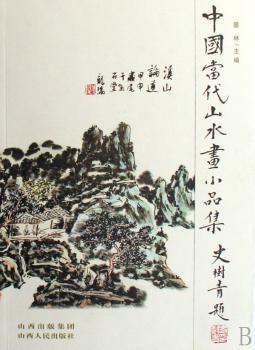 墨林/主编
中國當代山水畫小品集
史樹青題
溪山
論道
甲申
歲夜
千色
石堂
龍瑞
山西出版集团
山西人民出版社
B